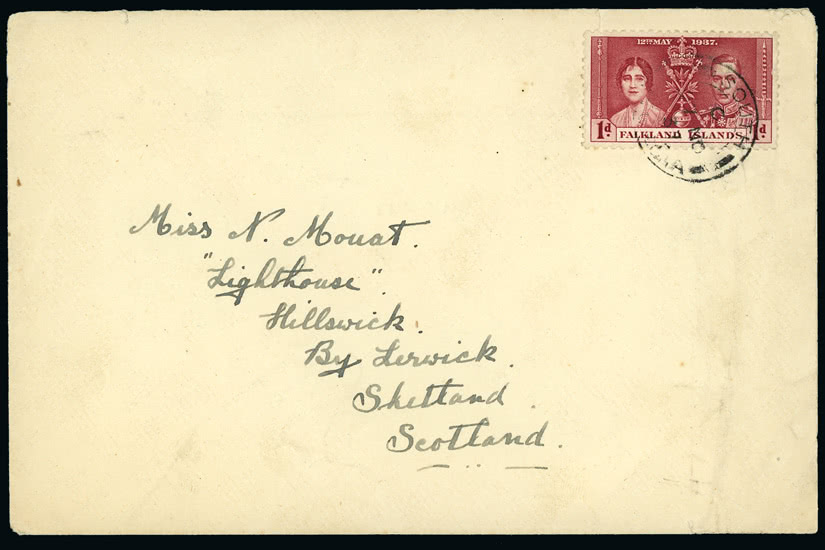 12TH MAY 1937.
1d FALKLAND ISLANDS 1d
SOUTH
Miss N. Mouat.
"Lighthouse".
Hillswick.
By Lerwick.
Shetland.
Scotland.